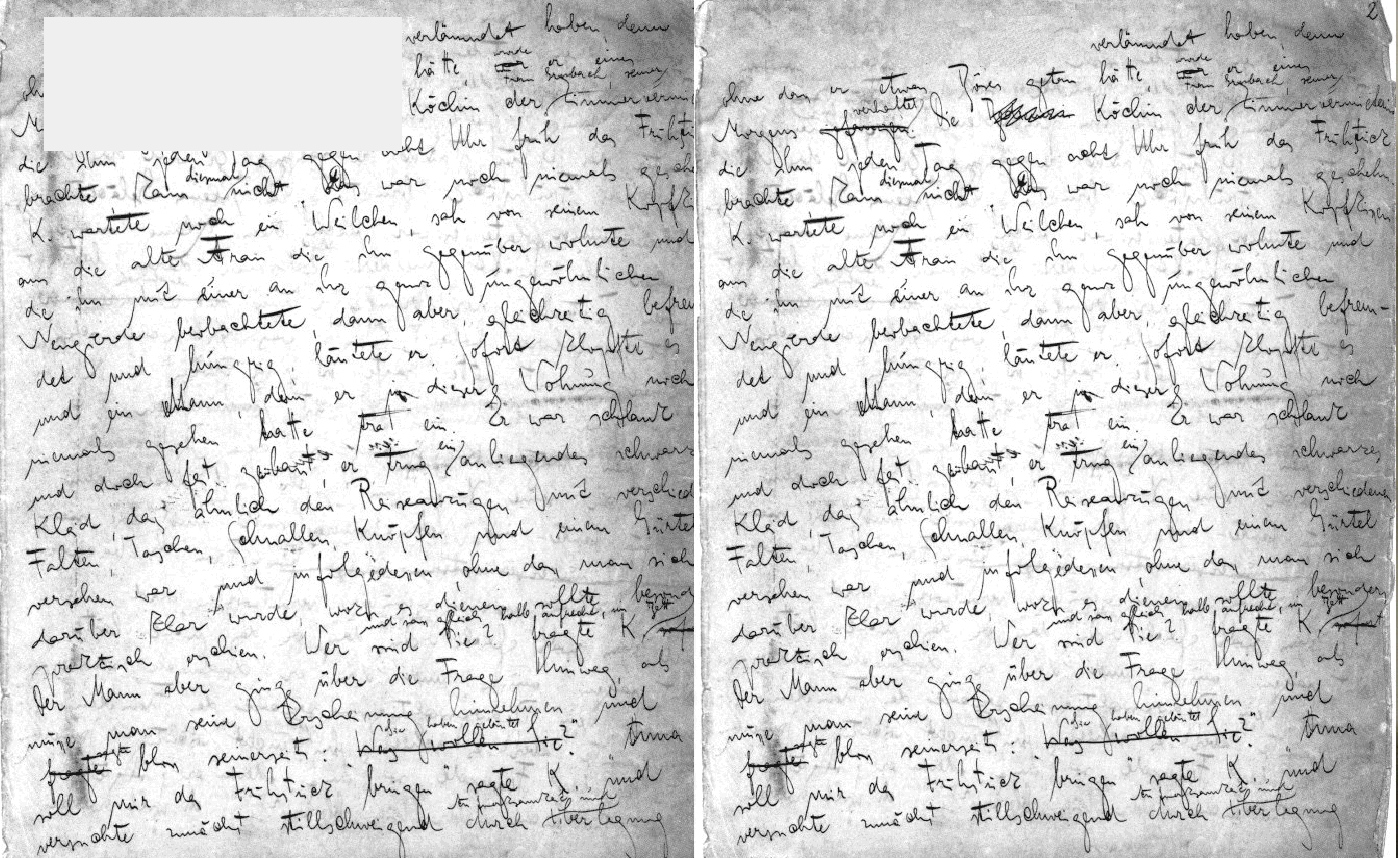 verläumdet haben, denn
hätte, wurde er eines
Frau Grubach, seiner
Köchin der
die ihm jeden Tag gegen acht Uhr früh das
brachte kam diesmal nicht. Das war noch niemals
K. wartete noch ein Weilchen, sah von seinem
aus die alte Frau die ihm gegenüber wohnte und
die ihn mit einer an ihr ganz ungewöhnlichen
Neugierde beobachtete, dann aber, gleichzeitig befrem
det und hungrig, läutete er. Sofort klopfte es
und ein Mann, den er in dieser Wohnung noch
niemals gesehen hatte trat ein. Er war schlank
und doch fest gebaut, er trug ein anliegendes schwarzes
Kleid, das ähnlich den Reiseanzügen mit verschied
Falten, Taschen, Schnallen, Knöpfen und einem Gürtel
versehen war und infolgedessen, ohne dass man sich
darüber klar wurde, wozu es dienen sollte, besond
praktisch erschien. Wer sind Sie? fragte K.
und sass gleich halb aufrecht im Bett
Der Mann aber ging über die Frage hinweg, als
müsse man seine Erscheinung hinnehmen und
sagte bloss seinerseits: Sie haben geläutet? Anna
soll mir das Frühstück bringen" sagte K. und
versuchte zunächst stillschweigend durch Überlegung
2
verläumdet haben, denn
ohne dass er etwas Böses getan hätte, wurde er eines
Frau Grubach, seiner
Morgens verhaftet. Die Köchin der Zimmervermieterin
die ihm jeden Tag gegen acht Uhr früh das Frühstück
brachte kam diesmal nicht. Das war noch niemals geschehn
K. wartete noch ein Weilchen, sah von seinem Kopfkissen
aus die alte Frau die ihm gegenüber wohnte und
die ihn mit einer an ihr ganz ungewöhnlichen
Neugierde beobachtete, dann aber, gleichzeitig befrem-
det und hungrig, läutete er. Sofort klopfte es
und ein Mann, den er in dieser Wohnung noch
niemals gesehen hatte trat ein. Er war schlank
und doch fest gebaut, er trug ein anliegendes schwarzes
Kleid, das ähnlich den Reiseanzügen mit verschiedenen
Falten, Taschen, Schnallen, Knöpfen und einem Gürtel
versehen war und infolgedessen, ohne dass man sich
darüber klar wurde, wozu es dienen sollte, besonders
praktisch erschien. Wer sind Sie? fragte K.
und sass gleich halb aufrecht im Bett
Der Mann aber ging über die Frage hinweg, als
müsse man seine Erscheinung hinnehmen und
sagte bloss seinerseits: Sie haben geläutet?" Anna
soll mir das Frühstück bringen" sagte K. und
versuchte zunächst stillschweigend durch Überlegung